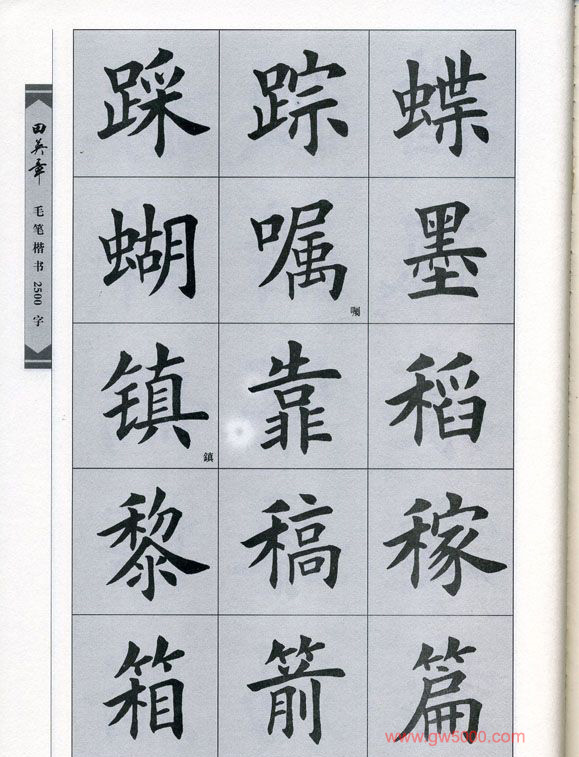 田英章 毛笔楷书 2500 字
踩 踪 蝶
蝴 嘱 墨
囑
镇 靠 稻
鎮
黎 稿 稼
箱 箭 篇
www.gw5000.com